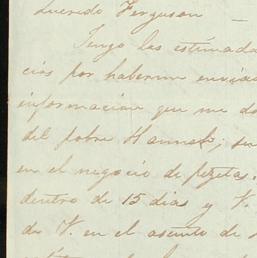 Querido Ferguson
Tengo las estimada
cias por haberme envia
informacion que me d
del pobre Hannah;
en el negocio de pesetas.
dentro de 15 dias y V.
de V. en el asunto de